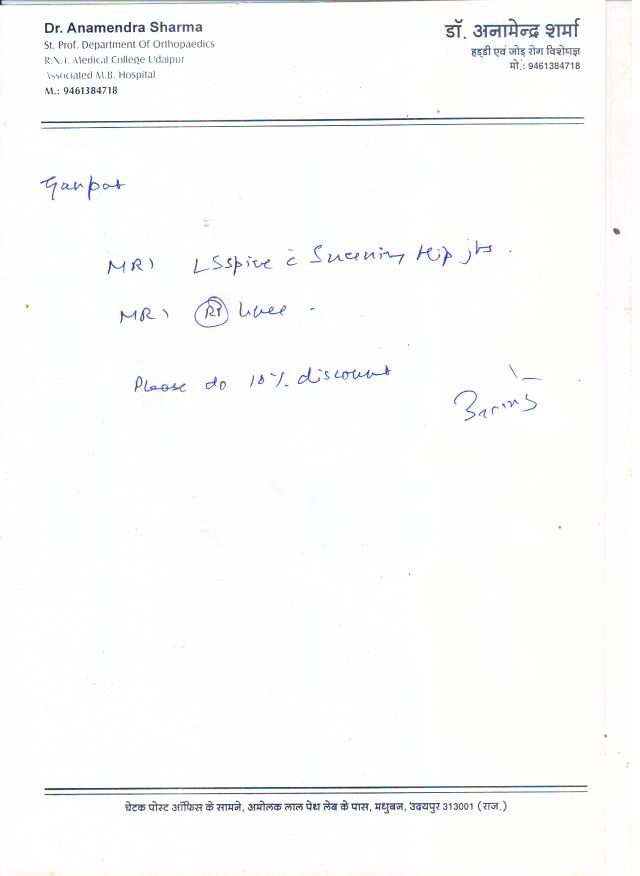 Dr. Anamendra Sharma
St. Prof. Department Of Orthopaedics
R.N.T. Medical College Udaipur
Associated M.B. Hospital
M.: 9461384718
डॉ. अनामेन्द्र शर्मा
हड्डी एवं जोड़ रोग विशेषज्ञ
मो.: 9461384718
Ganpat
MRI LSspine c̄ Screening Hip jts.
MRI Rt knee
Please do 10% discount
चेटक पोस्ट ऑफिस के सामने, अमोलक लाल पेथ लेब के पास, मधुबन, उदयपुर 313001 (राज.)